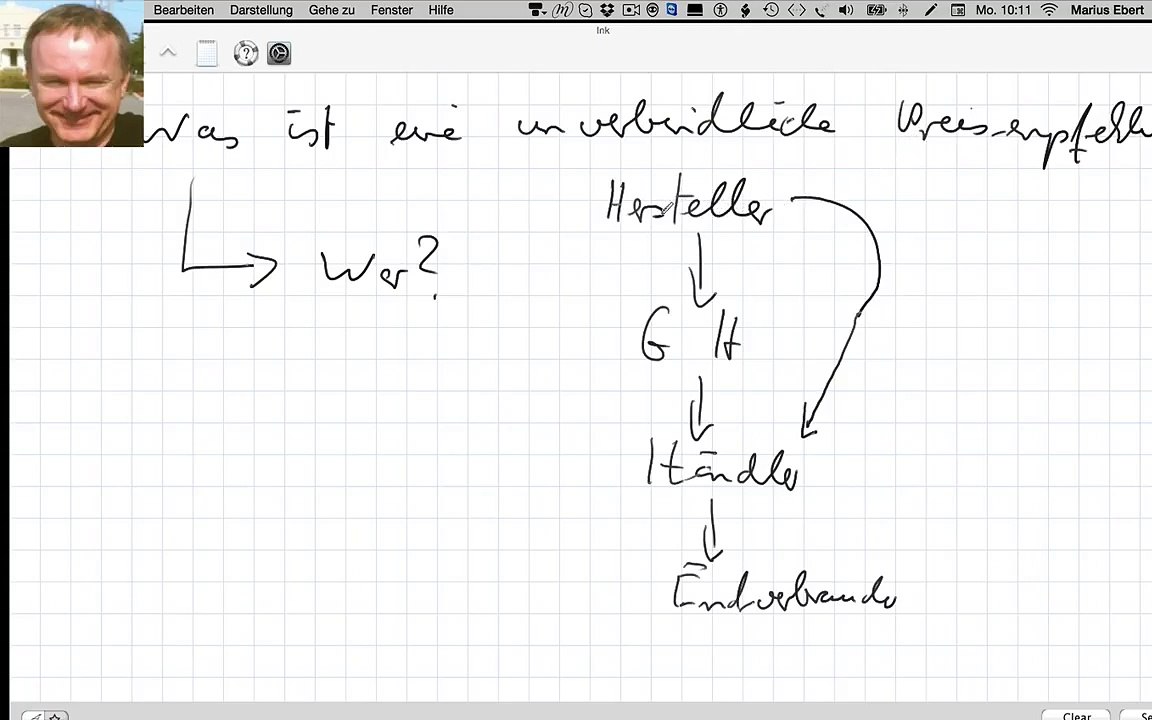 Bearbeiten Darstellung Gehe zu Fenster Hilfe Mo. 10:11 Marius Ebert
Ink
Was ist eine unverbindliche Preisempfehl
Hersteller
Wer?
G H
Händler
Endverbraucher
Clear Se